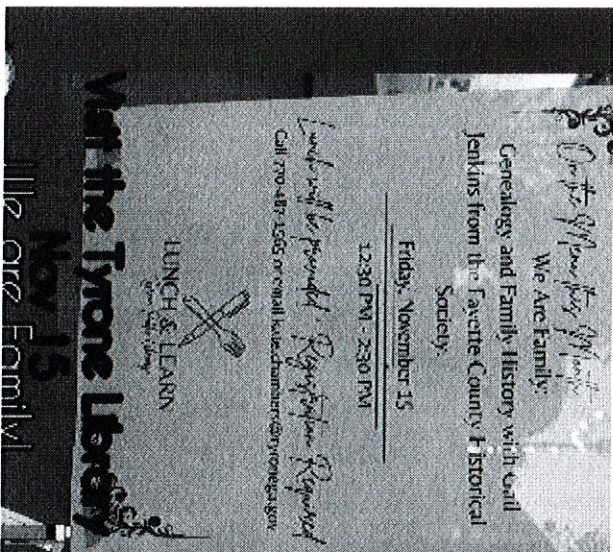 We Are Family:
Genealogy and Family History with Gail
Jenkins from the Fayette County Historical
Society.
Friday, November 15
12:30 PM - 2:30 PM
Lunch will be provided. Registration Required
Call 770-487-1565 or email
LUNCH & LEARN
Visit the Tyrone Library
Nov 15
We are Family!